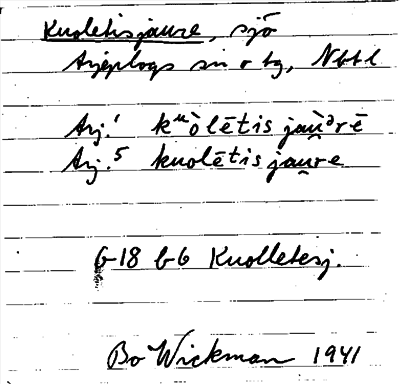 Kuoletisjaure, sjö
Arjeplogs sn o tg, Nbtl
Arj.¹ kᵘòlētis jaù̯ᵊrē
Arj.⁵ kuolētis jau̯re
G18 b6 Kuolletesj.
Bo Wickman 1941